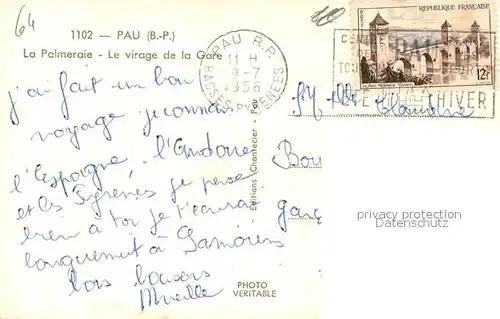 64
1102 — PAU (B.-P.)
La Palmeraie - Le virage de la Gare
j'ai fait un bon
voyage je connais
l'Espagne l'Andorre
et les Pyrénées je pense
bien à toi je t'écrirai
longuement à Samoëns
bons baisers
Mireille
PHOTO
VERITABLE
Editions Chantecler - Pau
PAU R.P.
11 H
9-7
1956
BASSES PYRENEES
REPUBLIQUE FRANÇAISE
12F
HIVER
Bou
Garç
privacy protection
Datenschutz